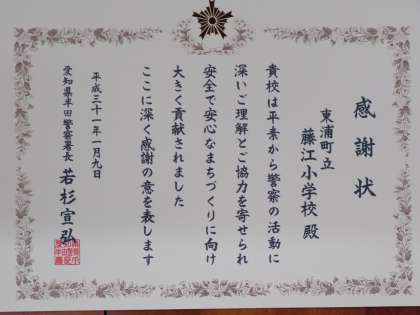 感謝状
東浦町立
藤江小学校 殿
貴校は平素から警察の活動に
深いご理解とご協力を寄せられ
安全で安心なまちづくりに向け
大きく貢献されました
ここに深く感謝の意を表します
平成三十一年一月九日
愛知県半田警察署長 若杉宣弘